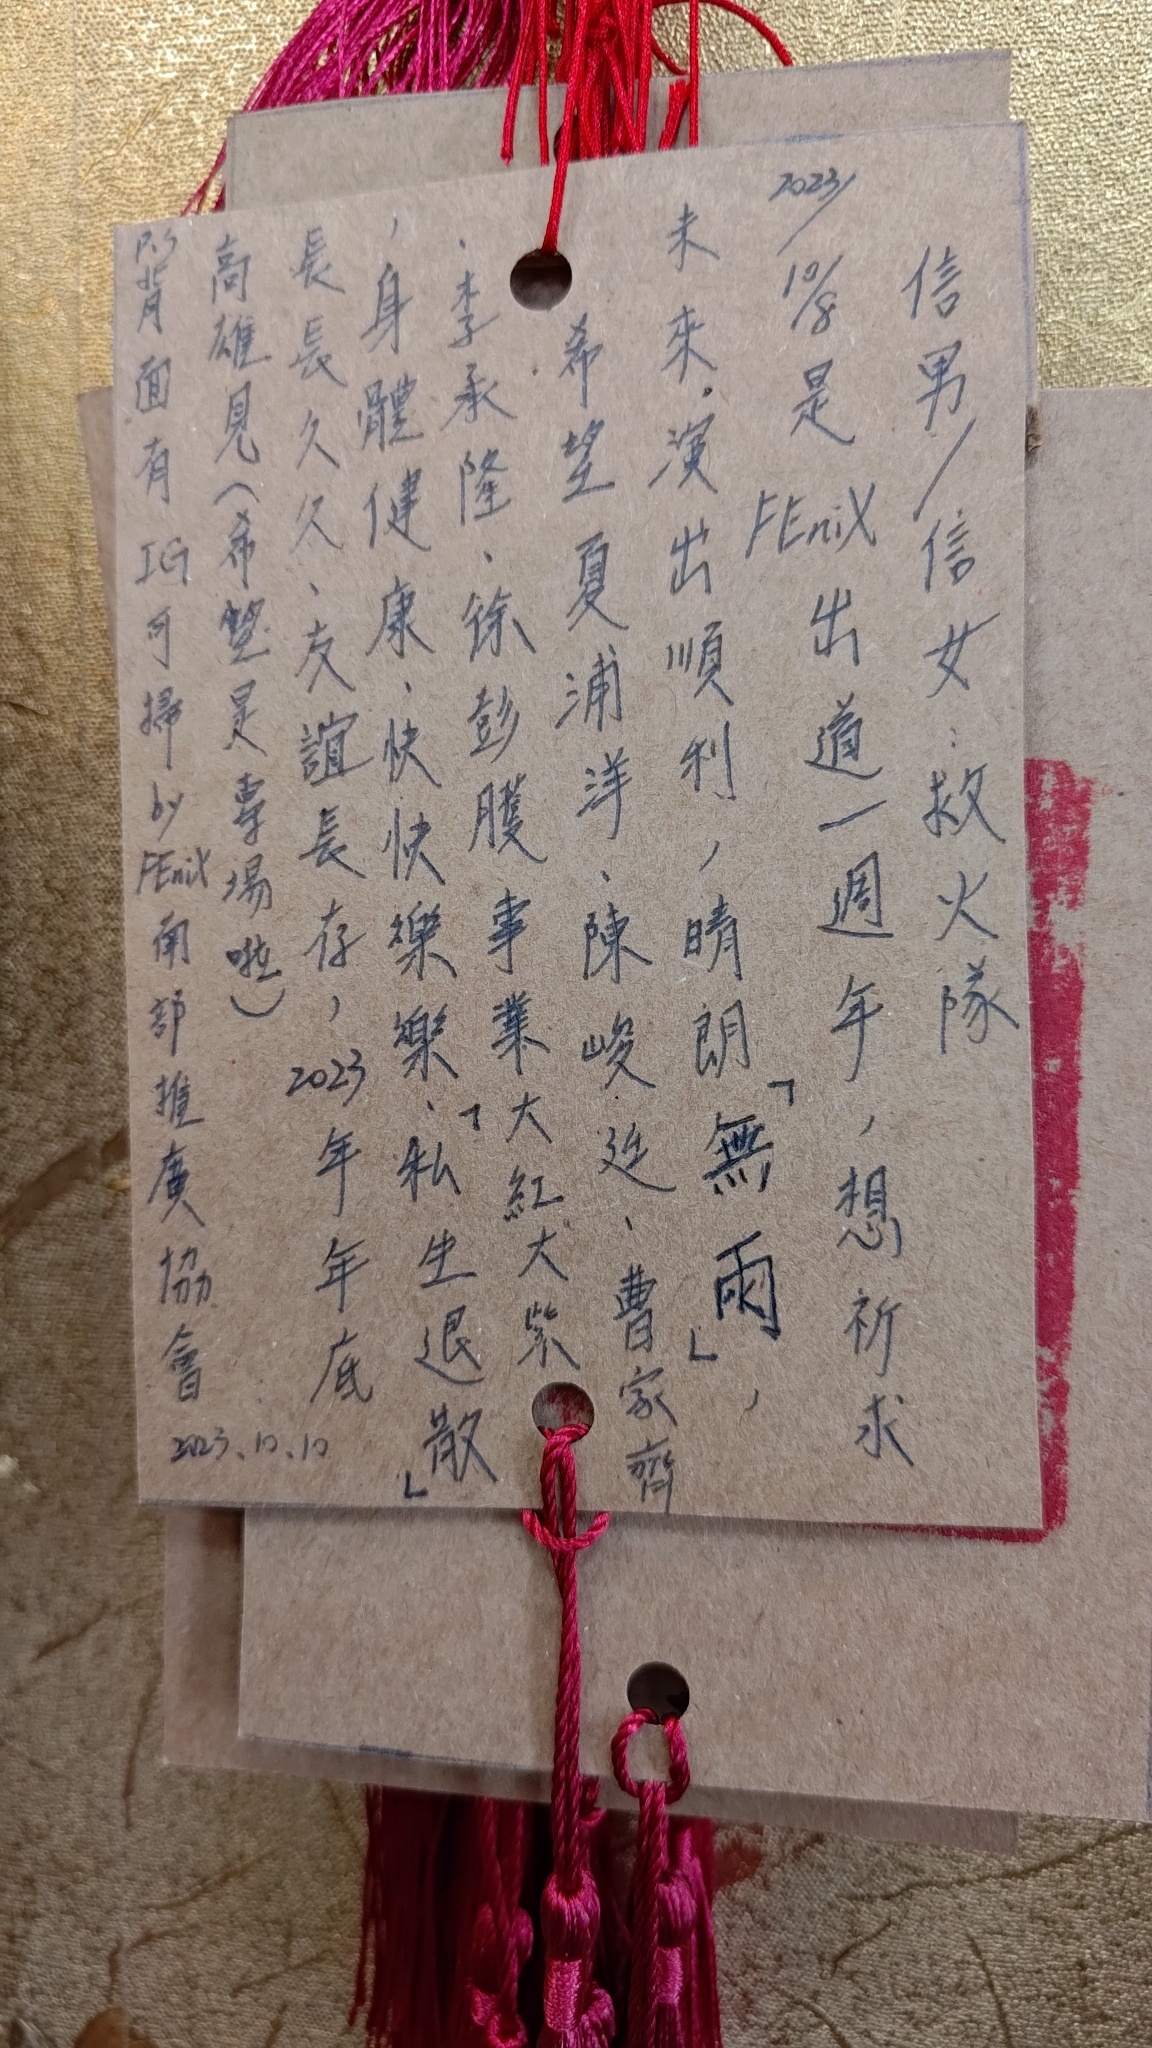 信男/信女：救火隊
2023/10/8是FEniX出道一週年，想祈求
未來.演出順利，晴朗「無雨」，
希望夏浦洋、陳峻廷、曹家齊
、李承隆、徐彭膄事業大紅大紫
，身體健康、快快樂樂、「私生退散」
長長久久、友誼長存，2023年年底
高雄見（希望是專場啦）
P.S背面有IG可掃by FEniX南部推廣協會
2023.10.10